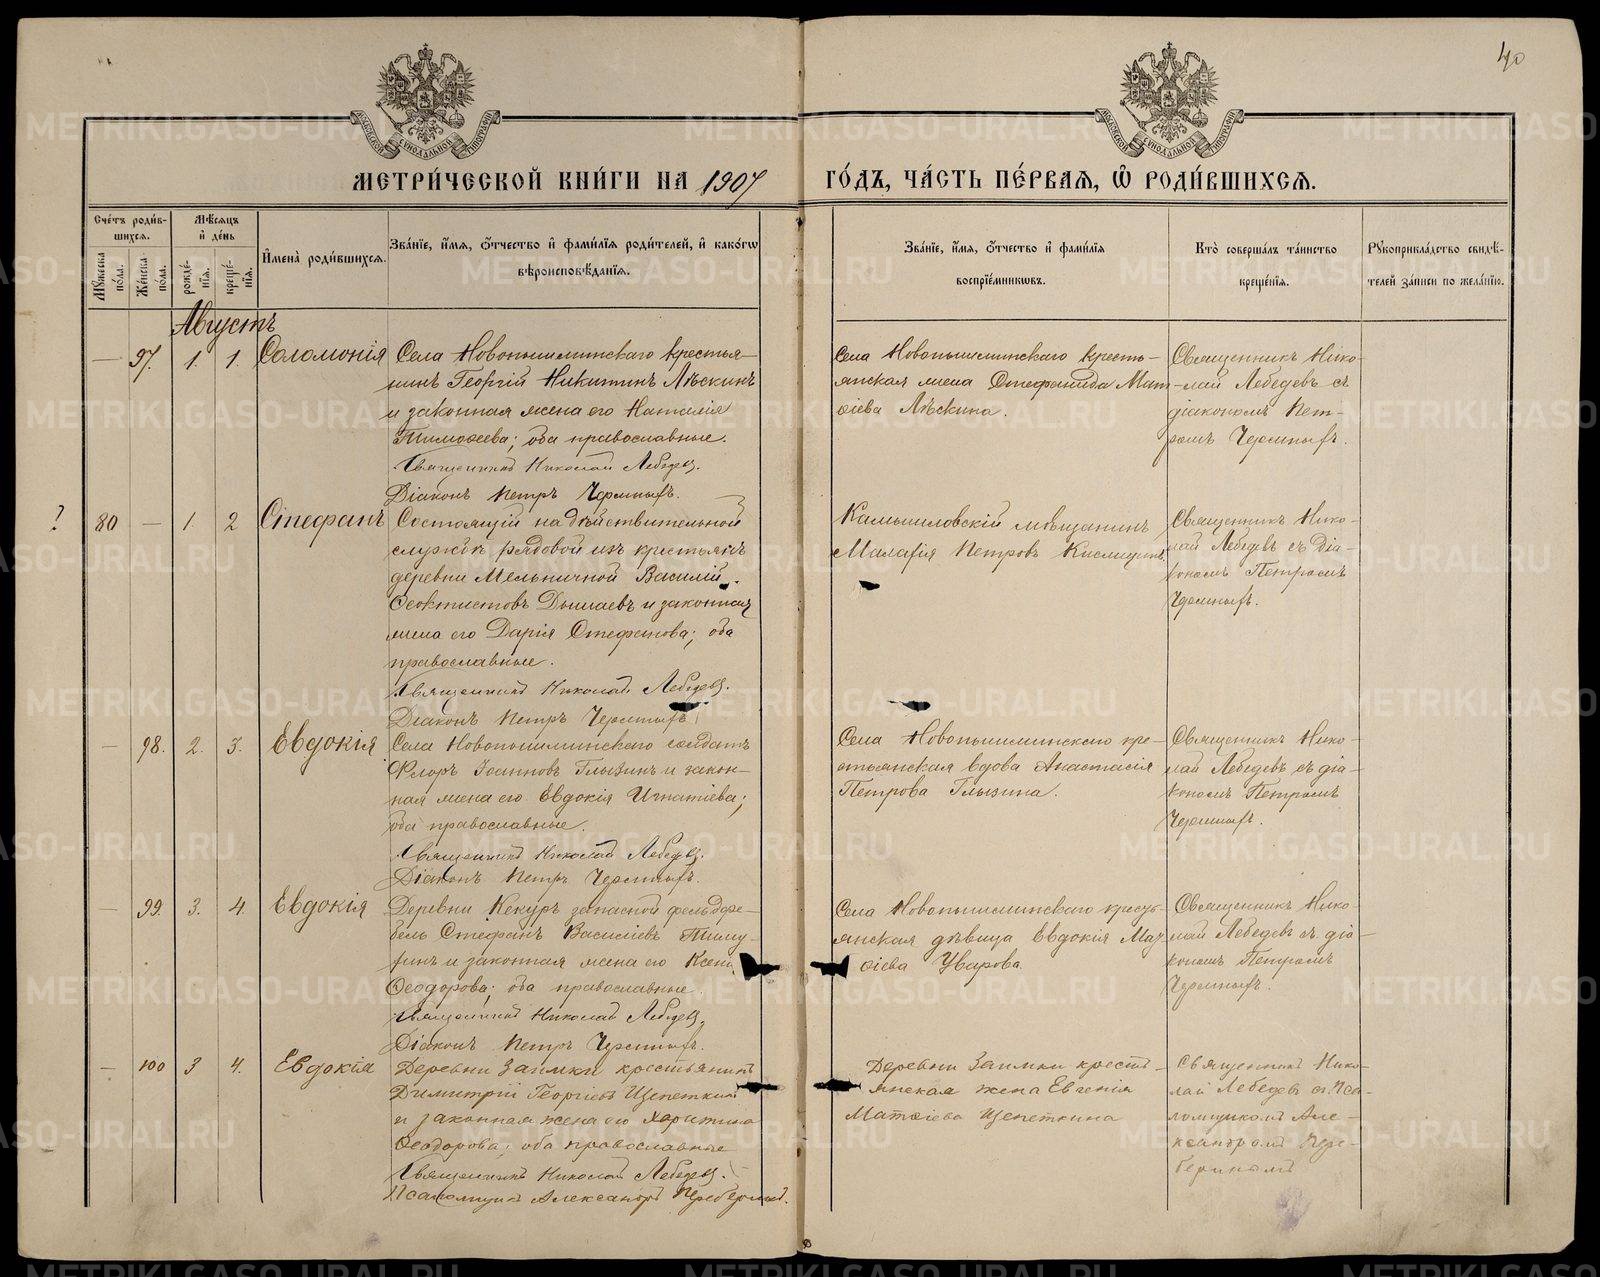 40
МОСКОВСКОЙ СѴНОДАЛЬНОЙ ТИПОГРАФІИ
МОСКОВСКОЙ СѴНОДАЛЬНОЙ ТИПОГРАФІИ
МЕТРИ́ЧЕСКОЙ КНИ́ГИ НА 1907 ГО́ДЪ, ЧА́СТЬ ПЕ́РВАЯ, Ѽ РОДИ́ВШИХСЯ.
Сче́тъ роди́в-
шихся.
Мѣ́сяцъ
и҆ де́нь
Мꙋ́жеска по́ла.
Же́нска по́ла.
рожде́-нїя.
креще́-нїя.
И҆мена̀ роди́вшихся.
Зва́нїе, и҆́мя, ѻ҆́тчество и҆ фами́лїя роди́телей, и҆ како́гѡ
вѣроисповѣ́данїя.
Зва́нїе, и҆́мя, ѻ҆́тчество и҆ фами́лїя
воспрїе́мникѡвъ.
Кто̀ соверша́лъ та́инство
креще́нїя.
Рꙋкоприкла́дство свидѣ́-
телей за́писи по жела́нїю.
Августъ
— 97. 1. 1. Соломонія
Села Новопышминскаго крестья-
нинъ Георгій Никитинъ Лѣскинъ
и законная жена его Наталія
Тимоѳеева; оба православные.
Священникъ Николай Лебедевъ.
Діаконъ Петръ Черемныхъ.
Села Новопышминскаго кресть-
янская жена Стефанида Мат-
ѳіева Лѣскина.
Священникъ Нико-
лай Лебедевъ съ
діакономъ Пет-
ромъ Черемныхъ.
? 80 — 1. 2 Стефанъ
Состоящій на дѣйствительной
службѣ рядовой изъ крестьянъ
деревни Мельничной Василій
Ѳеоктистовъ Дышаевъ и законная
жена его Дарія Стефанова; оба
православные.
Священникъ Николай Лебедевъ.
Діаконъ Петръ Черемныхъ.
Камышловскій мѣщанинъ
Малафія Петровъ Кислицинъ
Священникъ Нико-
лай Лебедевъ съ діа-
кономъ Петромъ
Черемныхъ.
— 98. 2. 3. Евдокія
Села Новопышминскаго солдатъ
Флоръ Іоанновъ Глызинъ и закон-
ная жена его Евдокія Игнатіева;
оба православные.
Священникъ Николай Лебедевъ.
Діаконъ Петръ Черемныхъ.
Села Новопышминскаго кре-
стьянская вдова Анастасія
Петрова Глызина.
Священникъ Нико-
лай Лебедевъ съ діа-
кономъ Петромъ
Черемныхъ.
— 99. 3. 4. Евдокія
Деревни Кекуръ запасной фельдфе-
бель Стефанъ Василіевъ
и законная жена его
Ѳеодорова; оба православные.
Священникъ Николай Лебедевъ.
Діаконъ Петръ Черемныхъ.
Села Новопышминскаго кресть-
янская дѣвица Евдокія Мат-
ѳіева Уварова.
Священникъ Нико-
лай Лебедевъ съ діа-
кономъ Петромъ
Черемныхъ.
— 100 3 4. Евдокія
Деревни Заимки крестьянинъ
Димитрій Георгіевъ Щепеткинъ
и законная жена его Харитина
Ѳеодорова; оба православные
Священникъ Николай Лебедевъ.
Псаломщикъ Александръ
Деревни Заимки крестъ-
янская жена Евгенія
Матѳіева Щепеткина
Священникъ Нико-
лай Лебедевъ съ Пса-
ломщикомъ Але-
ксандромъ
METRIKI.GASO-URAL.RU